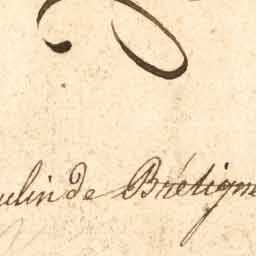 ulin de Brétign